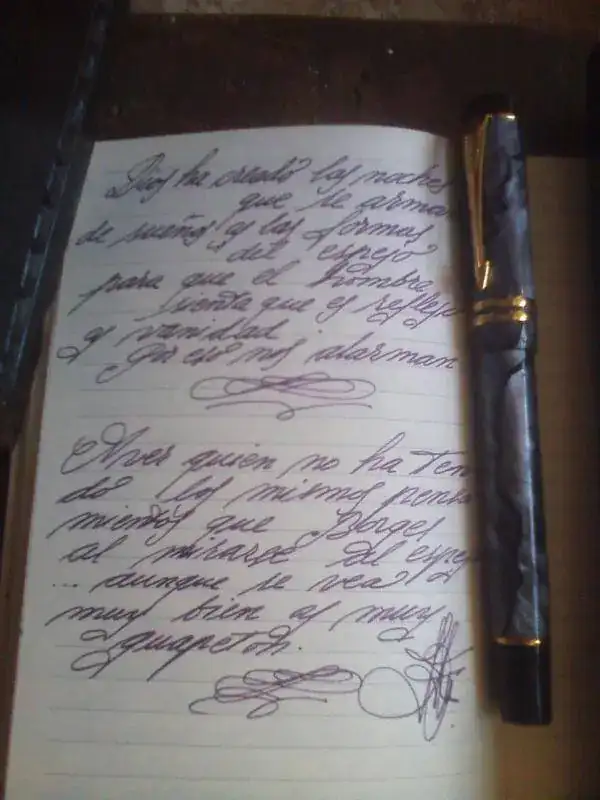 Dios ha creado las noches
que se arman
de sueños y las formas
del espejo
para que el hombre
sienta que es reflejo
y vanidad.
Por eso nos alarman
A ver quien no ha Teni
do los mismos pensa
mientos que Borges
al mirarse del espejo
... aunque se vea
muy bien y muy
guapetón.